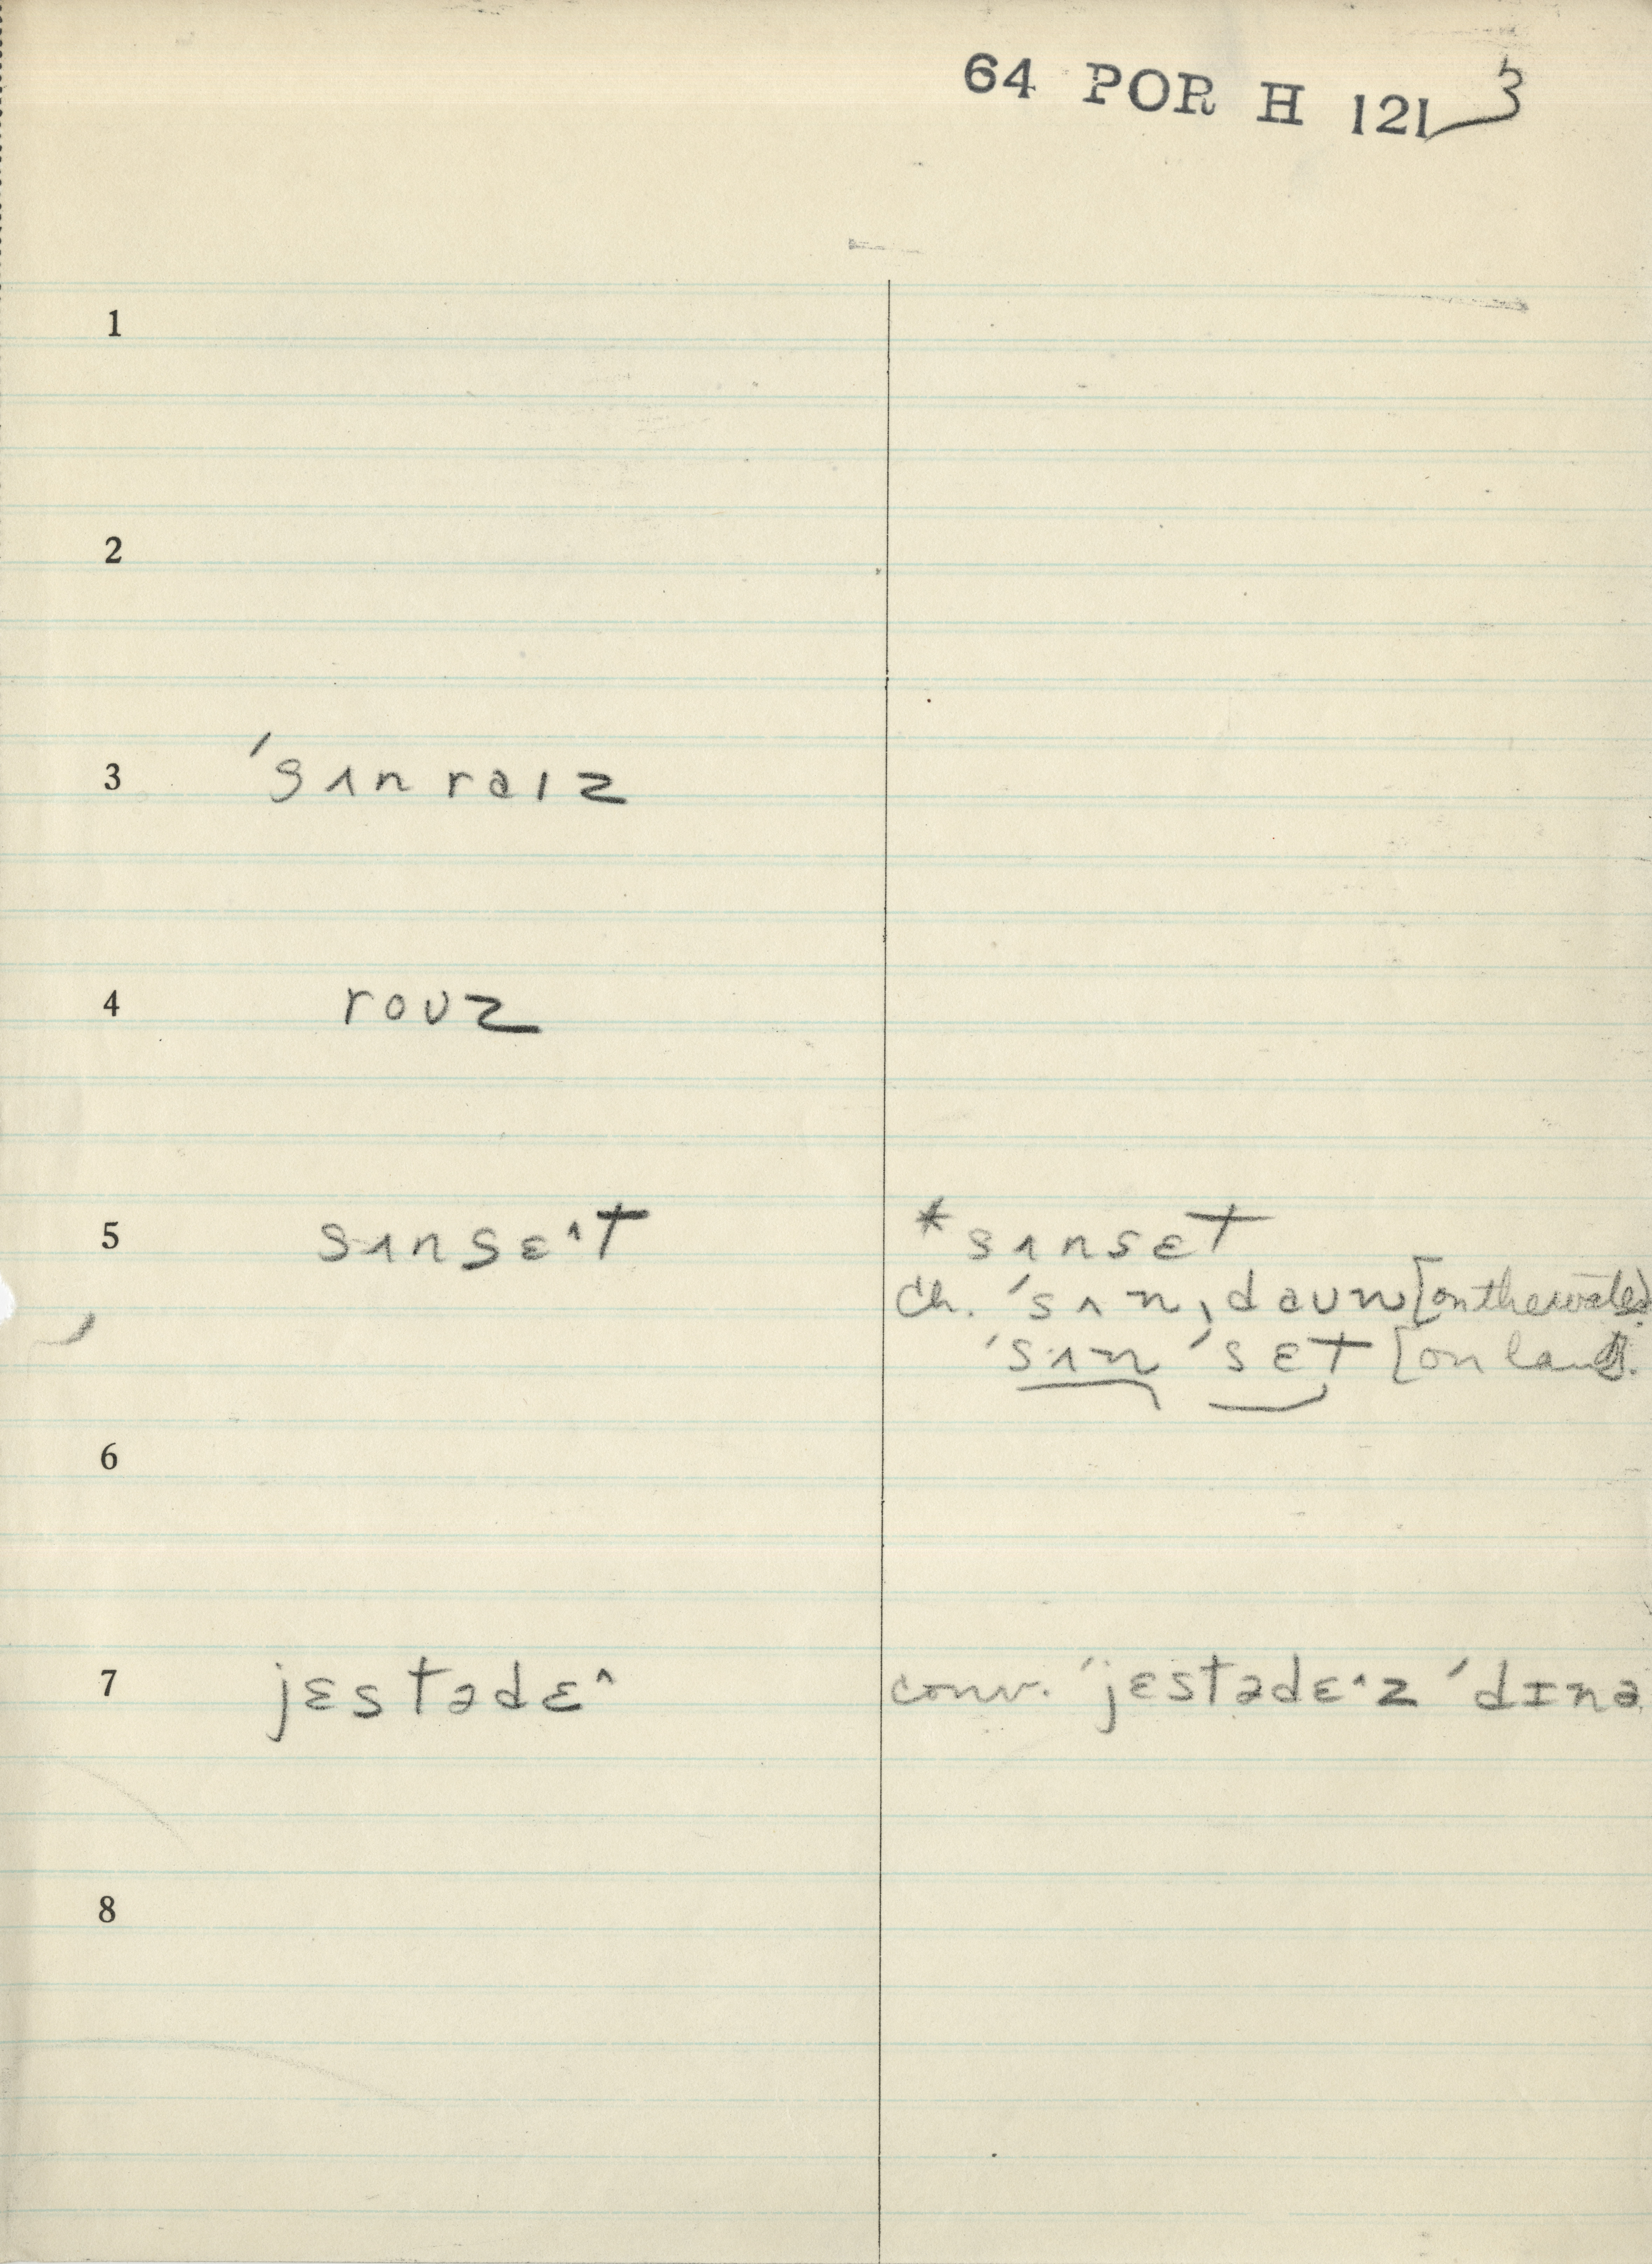 64 POR H 121 3
1
2
3 ˈsʌnraɪz
4 roʊz
5 sʌnsɛ^t *sʌnsɛt
ch. ˈsʌnˌdaʊn [on the water]
ˈsʌn ˈsɛt [on land].
6
7 jɛstədɛ^ conv. ˈjɛstədɛ^z ˈdɪnə
8